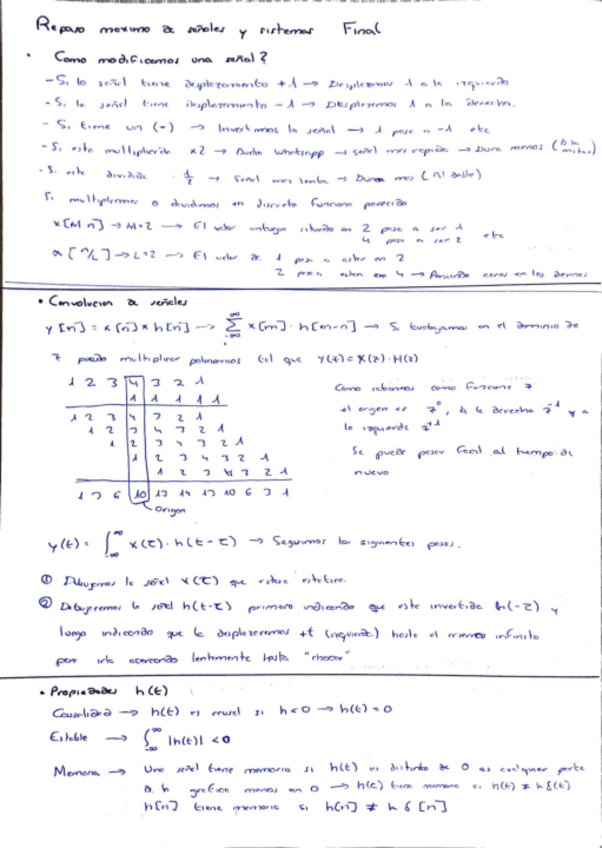 Repaso maximo de señales y sistemas Final
• Como modificamos una señal?
- Si la señal tiene desplazamiento +1 → Desplazamos 1 a la izquierda
- Si la señal tiene desplazamiento -1 → Desplazamos 1 a la derecha.
- Si tiene un (-) → Invertimos la señal → 1 pasa a -1 etc
- Si esta multiplicada x2 → Audio Whatsapp → señal mas rapida → Dura menos (la mitad)
- Si esta dividida 1/2 → Señal mas lenta → Durara mas (el doble)
Si multiplicamos o dividimos en discreto funciona parecido
x[Mn] → M=2 → El valor antiguo situado en 2 pasa a ser 1 etc
4 pasa a ser 2
x[n/L] → L=2 → El valor de 1 pasa a estar en 2
2 pasa a estar en 4 → Poniendo ceros en los demas
• Convolucion de señales
y[n] = x[n] * h[n] → ∑ x[m] · h[m-n] → Si trabajamos en el dominio de
∞
-∞
z puedo multiplicar polinomios tal que Y(z) = X(z) · H(z)
1 2 3 4 3 2 1
1 1 1 1 1
1 2 3 4 3 2 1
1 2 3 4 3 2 1
1 2 3 4 3 2 1
1 2 3 4 3 2 1
1 2 3 4 3 2 1
1 3 6 10 13 14 13 10 6 3 1
Origen
Como sabemos como funciona z
el origen es z⁰, a la derecha z⁻¹ y a
la izquierda z⁺¹
Se puede pasar facil al tiempo de
nuevo
y(t) = ∫ x(τ) · h(t-τ) → Seguimos los siguientes pasos.
∞
-∞
① Dibujamos la señal x(τ) que estara estatica.
② Dibujaremos la señal h(t-τ) primero indicando que esta invertida h(-τ) y
luego indicando que la desplazaremos +t (izquierda) hasta el menos infinito
para irla acercando lentamente hasta "chocar"
• Propiedades h(t)
Causalidad → h(t) es causal si h<0 → h(t)=0
Estable → ∫ |h(t)| < ∞
∞
-∞
Memoria → Una señal tiene memoria si h(t) es distinto de 0 en cualquier parte
de la grafica menos en 0 → h(t) tiene memoria si h(t) ≠ kδ(t)
h[n] tiene memoria si h[n] ≠ k δ[n]